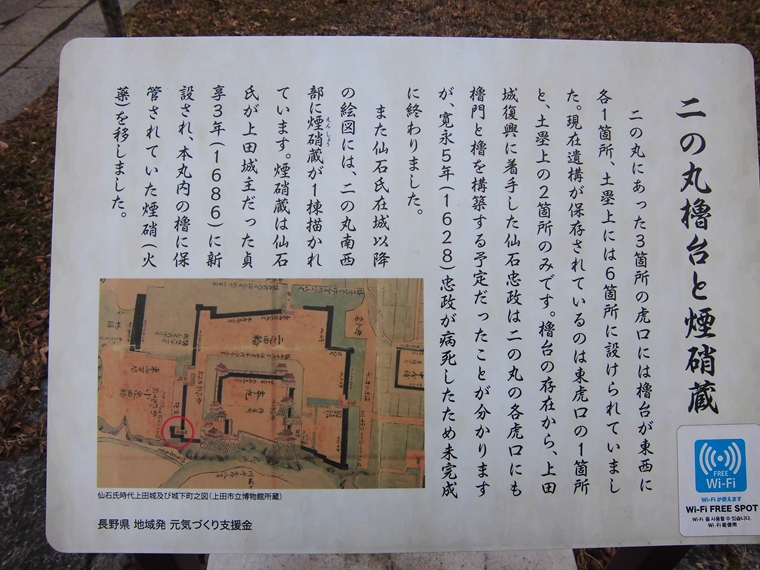 二の丸櫓台と煙硝蔵
二の丸にあった3箇所の虎口には櫓台が東西に
各1箇所、土塁上には6箇所に設けられていまし
た。現在遺構が保存されているのは東虎口の1箇所
と、土塁上の2箇所のみです。櫓台の存在から、上田
城復興に着手した仙石忠政は二の丸の各虎口にも
櫓門と櫓を構築する予定だったことが分かります
が、寛永5年(1628)忠政が病死したため未完成
に終わりました。
また仙石氏在城以降
の絵図には、二の丸南西
部に煙硝蔵が1棟描かれ
えんしょう
ています。煙硝蔵は仙石
氏が上田城主だった貞
享3年(1686)に新
設され、本丸内の櫓に保
管されていた煙硝(火
薬)を移しました。
二之曲輪
本丸
仙石氏時代上田城及び城下町之図(上田市立博物館所蔵)
長野県 地域発 元気づくり支援金
FREE
Wi-Fi
Wi-Fiが使えます
Wi-Fi FREE SPOT
Wi-Fi 를 사용할 수 있습니다.
Wi-Fi 能使用